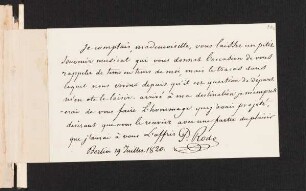 Je comptais, mademoiselle, vous laisser un petit
souvenir musical qui vous donnat l'occasion de vous
rappeler de tems en tems de moi mais le tracas dans
lequel nous vivons depuis qu'il est question de départ
m'en ote le loisir. arrivé à ma destination, je m'empres
serai de vous faire l'hommage que j'avais projeté
désirant que vous le receviez avec une partie du plaisir
que j'aurai à vous l'offrir P. Rode
Berlin 19 Juillet 1820.